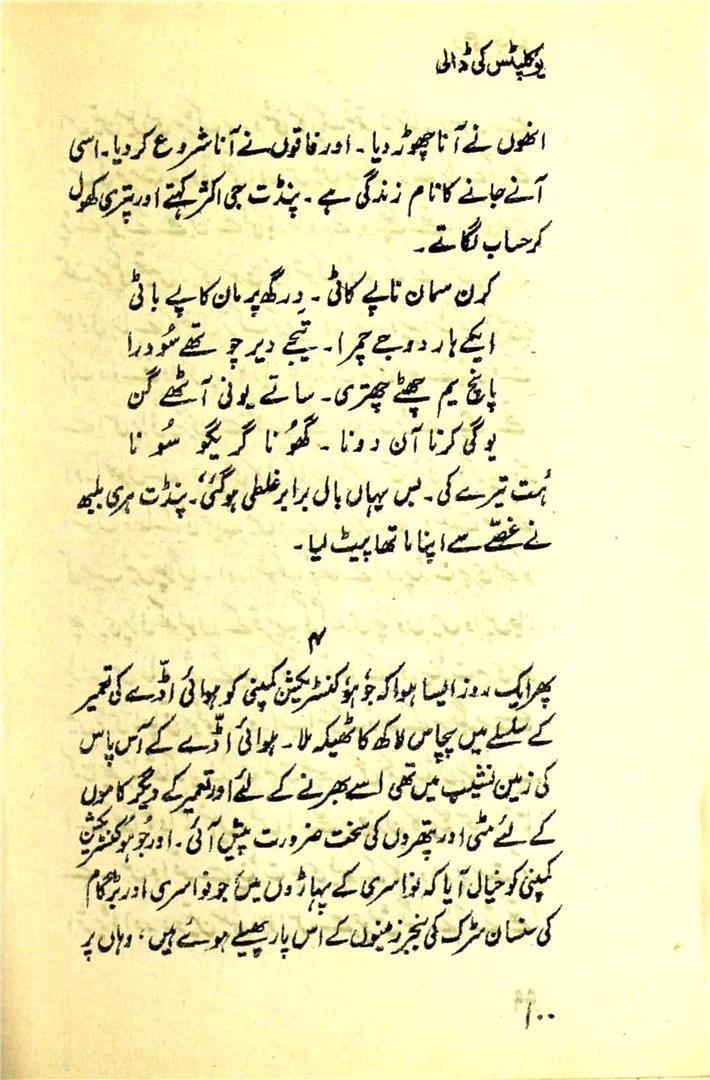 یوکلپٹس کی ڈالی
انھوں نے آنا چھوڑ دیا۔ اور فاقوں نے آنا شروع کر دیا۔ اسی
آنے جانے کا نام زندگی ہے۔ پنڈت جی اکثر کہتے اور پتری کھول
کر حساب لگاتے۔
کرن سمان ناپے کاٹی۔ دِرگھ پرمان کاپے باٹی
ایکے ہار دوجے چمرا۔ تیجے دیر چوتھے سُودرا
پانچ یم چھٹے چھتری۔ ساتے یونی آٹھے گن
یوگی کرنا آن دونا۔ گھُونا گریگو سُونا
ہُت تیرے کی۔ بس یہاں بال برابر غلطی ہوگئی‘۔ پنڈت ہری بلبھ
نے غصّے سے اپنا ماتھا پیٹ لیا۔
۴
پھر ایک روز ایسا ہوا کہ جُو ہُو کنسٹریکشن کمپنی کو ہوائی اڈّے کی تعمیر
کے سلسلے میں پچاس لاکھ کا ٹھیکہ ملا۔ ہوائی اڈّے کے آس پاس
کی زمین نشیب میں تھی اسے بھرنے کے لئے اور تعمیر کے دیگر کاموں
کے لئے مٹی اور پتھروں کی سخت ضرورت پیش آئی۔ اور جُو ہُو کنسٹریکشن
کمپنی کو خیال آیا کہ نواسری کے پہاڑوں میں جو نواسری اور بڑگام
کی سنسان سڑک کی بنجر زمینوں کے اس پار پھیلے ہوئے ہیں، وہاں پر
۱۰۰